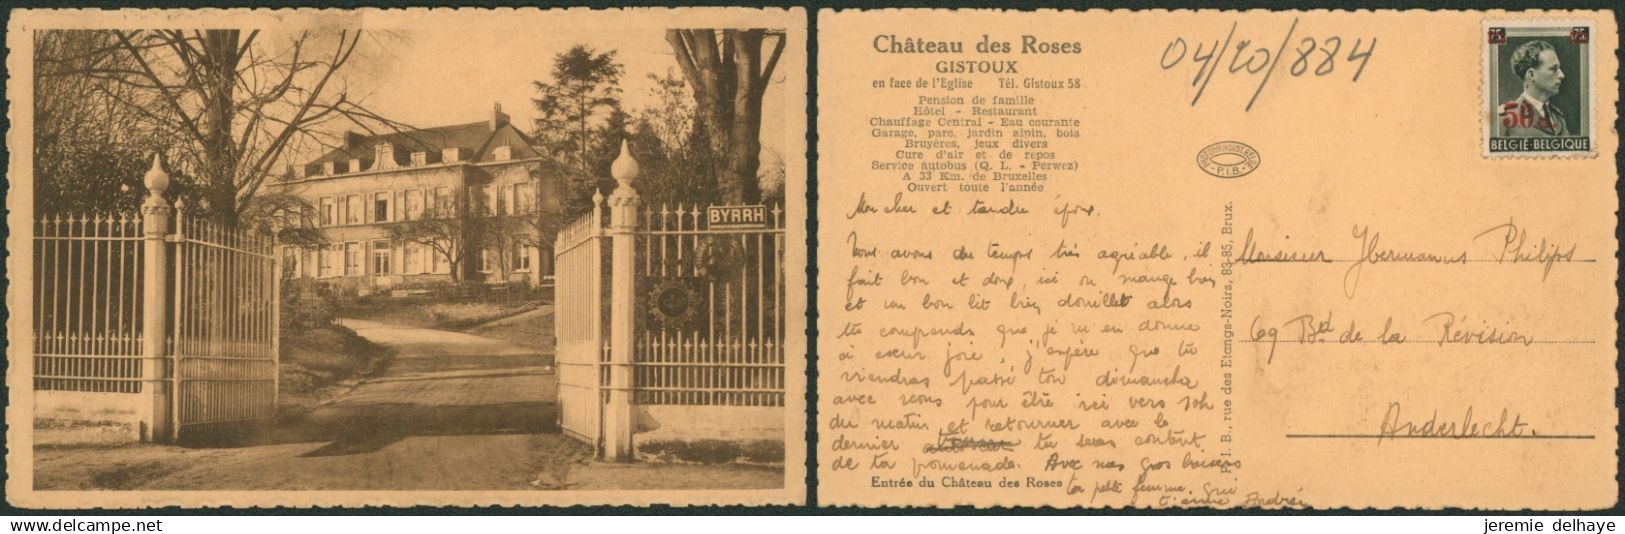 BYRRH
Château des Roses
GISTOUX
en face de l'Eglise Tél. Gistoux 58
Pension de famille
Hôtel - Restaurant
Chauffage Central - Eau courante
Garage, parc, jardin alpin, bois
Bruyères, jeux divers
Cure d'air et de repos
Service autobus (Q. L. - Perwez)
A 33 Km. de Bruxelles
Ouvert toute l'année
04/20/884
75c 75c
50c
BELGIE-BELGIQUE
P.I.B.
Mon cher et tendre époux.
Nous avons du temps très agréable, il
fait bon et doux, ici on mange bien
et un bon lit bien douillet alors
tu comprends que je m'en donne
à cœur joie, j'espère que tu
viendras passé ton dimanche
avec nous pour être ici vers 10h
du matin et retourner avec le
dernier tu seras content
de ta promenade. Avec mes gros baisers
ta petite femme qui
t'aime Andrée
Entrée du Château des Roses
P. I. B., rue des Etangs-Noirs, 83-85, Brux.
Monsieur Hermanus Philips
69 Bd de la Révision
Anderlecht.
jeremie delhaye